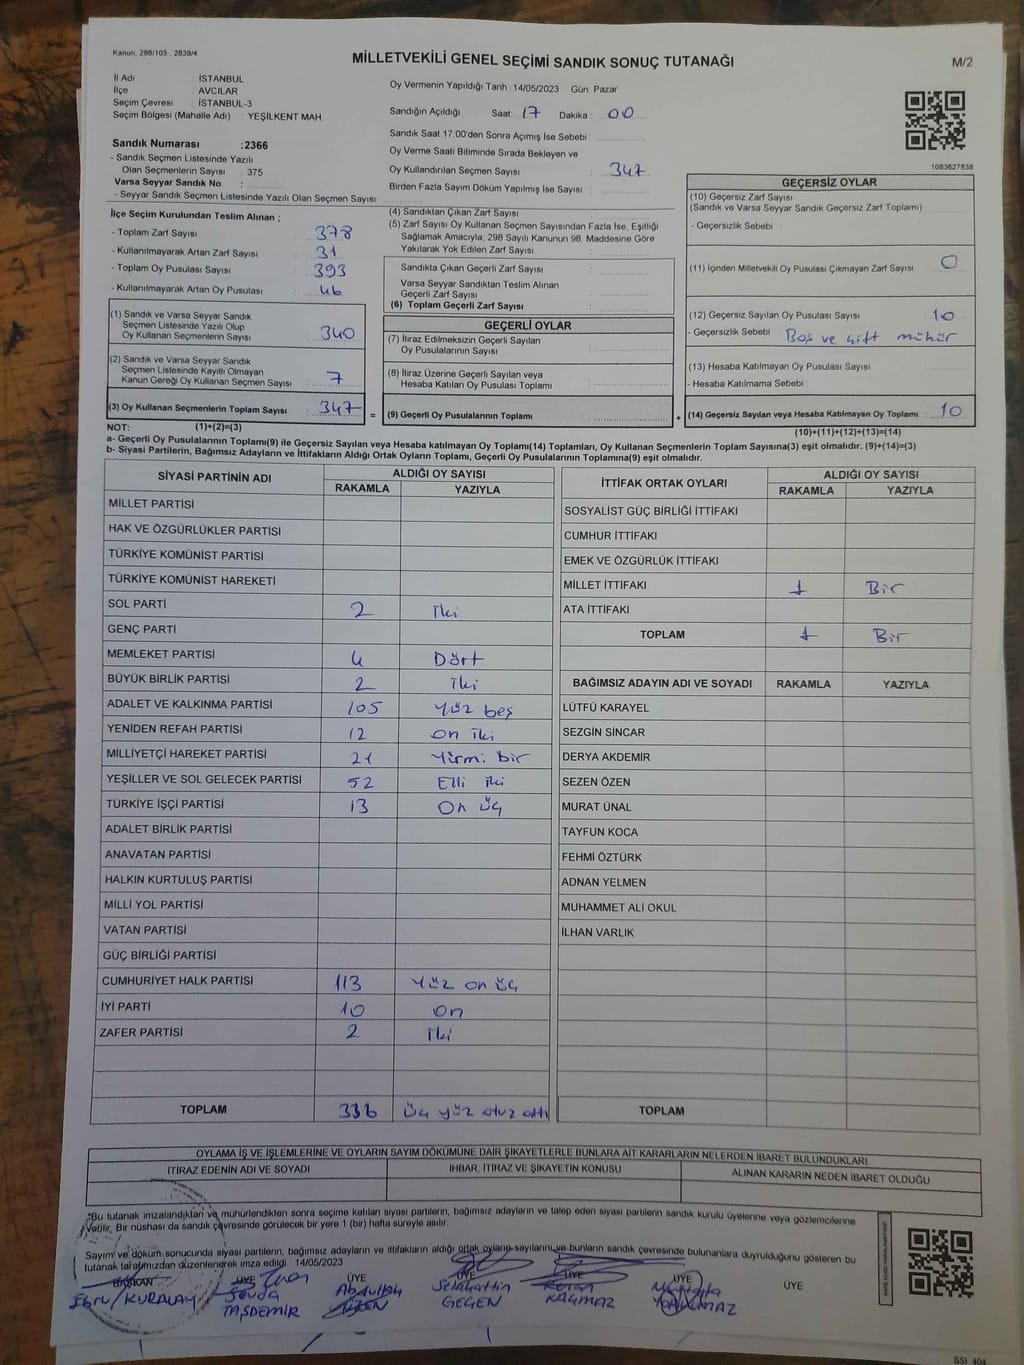 Kanun: 298/105 , 2839/4
MİLLETVEKİLİ GENEL SEÇİMİ SANDIK SONUÇ TUTANAĞI
M/2
İl Adı : İSTANBUL
İlçe : AVCILAR
Seçim Çevresi : İSTANBUL-3
Seçim Bölgesi (Mahalle Adı) : YEŞİLKENT MAH.
Sandık Numarası :2366
- Sandık Seçmen Listesinde Yazılı
Olan Seçmenlerin Sayısı : 375
Varsa Seyyar Sandık No :
- Seyyar Sandık Seçmen Listesinde Yazılı Olan Seçmen Sayısı:
Oy Vermenin Yapıldığı Tarih 14/05/2023 Gün: Pazar
Sandığın Açıldığı Saat: 17 Dakika: 00
Sandık Saat 17.00'den Sonra Açımış İse Sebebi :
Oy Verme Saati Bitiminde Sırada Bekleyen ve
Oy Kullandırılan Seçmen Sayısı : 347
Birden Fazla Sayım Döküm Yapılmış İse Sayısı :
1083627838
İlçe Seçim Kurulundan Teslim Alınan ;
- Toplam Zarf Sayısı : 378
- Kullanılmayarak Artan Zarf Sayısı : 31
- Toplam Oy Pusulası Sayısı : 393
- Kullanılmayarak Artan Oy Pusulası : 46
(1) Sandık ve Varsa Seyyar Sandık
Seçmen Listesinde Yazılı Olup
Oy Kullanan Seçmenlerin Sayısı : 340
(2) Sandık ve Varsa Seyyar Sandık
Seçmen Listesinde Kayıtlı Olmayan
Kanun Gereği Oy Kullanan Seçmen Sayısı : 7
(3) Oy Kullanan Seçmenlerin Toplam Sayısı : 347
(4) Sandıktan Çıkan Zarf Sayısı :
(5) Zarf Sayısı Oy Kullanan Seçmen Sayısından Fazla İse, Eşitliği
Sağlamak Amacıyla, 298 Sayılı Kanunun 98. Maddesine Göre
Yakılarak Yok Edilen Zarf Sayısı :
Sandıkta Çıkan Geçerli Zarf Sayısı :
Varsa Seyyar Sandıktan Teslim Alınan
Geçerli Zarf Sayısı :
(6) Toplam Geçerli Zarf Sayısı :
GEÇERLİ OYLAR
(7) İtiraz Edilmeksizin Geçerli Sayılan
Oy Pusulalarının Sayısı :
(8) İtiraz Üzerine Geçerli Sayılan veya
Hesaba Katılan Oy Pusulası Toplamı :
= (9) Geçerli Oy Pusulalarının Toplamı :
GEÇERSİZ OYLAR
(10) Geçersiz Zarf Sayısı
(Sandık ve Varsa Seyyar Sandık Geçersiz Zarf Toplamı) :
- Geçersizlik Sebebi :
(11) İçinden Milletvekili Oy Pusulası Çıkmayan Zarf Sayısı : 0
(12) Geçersiz Sayılan Oy Pusulası Sayısı : 10
- Geçersizlik Sebebi : Boş ve çift mühür
(13) Hesaba Katılmayan Oy Pusulası Sayısı :
- Hesaba Katılmama Sebebi :
+ (14) Geçersiz Sayılan veya Hesaba Katılmayan Oy Toplamı : 10
NOT: (1)+(2)=(3)
(10)+(11)+(12)+(13)=(14)
a- Geçerli Oy Pusulalarının Toplamı(9) ile Geçersiz Sayılan veya Hesaba katılmayan Oy Toplamı(14) Toplamları, Oy Kullanan Seçmenlerin Toplam Sayısına(3) eşit olmalıdır. (9)+(14)=(3)
b- Siyasi Partilerin, Bağımsız Adayların ve İttifakların Aldığı Oyların Toplamı, Geçerli Oy Pusulalarının Toplamına(9) eşit olmalıdır.
SİYASİ PARTİNİN ADI
ALDIĞI OY SAYISI
RAKAMLA YAZIYLA
MİLLET PARTİSİ
HAK VE ÖZGÜRLÜKLER PARTİSİ
TÜRKİYE KOMÜNİST PARTİSİ
TÜRKİYE KOMÜNİST HAREKETİ
SOL PARTİ 2 iki
GENÇ PARTİ
MEMLEKET PARTİSİ 4 Dört
BÜYÜK BİRLİK PARTİSİ 2 iki
ADALET VE KALKINMA PARTİSİ 105 Yüz beş
YENİDEN REFAH PARTİSİ 12 on iki
MİLLİYETÇİ HAREKET PARTİSİ 21 Yirmi bir
YEŞİLLER VE SOL GELECEK PARTİSİ 52 Elli iki
TÜRKİYE İŞÇİ PARTİSİ 13 On üç
ADALET BİRLİK PARTİSİ
ANAVATAN PARTİSİ
HALKIN KURTULUŞ PARTİSİ
MİLLİ YOL PARTİSİ
VATAN PARTİSİ
GÜÇ BİRLİĞİ PARTİSİ
CUMHURİYET HALK PARTİSİ 113 Yüz on üç
İYİ PARTİ 10 on
ZAFER PARTİSİ 2 iki
TOPLAM 336 üç yüz otuz altı
İTTİFAK ORTAK OYLARI
ALDIĞI OY SAYISI
RAKAMLA YAZIYLA
SOSYALİST GÜÇ BİRLİĞİ İTTİFAKI
CUMHUR İTTİFAKI
EMEK VE ÖZGÜRLÜK İTTİFAKI
MİLLET İTTİFAKI 1 Bir
ATA İTTİFAKI
TOPLAM 1 Bir
BAĞIMSIZ ADAYIN ADI VE SOYADI RAKAMLA YAZIYLA
LÜTFÜ KARAYEL
SEZGİN SİNCAR
DERYA AKDEMİR
SEZEN ÖZEN
MURAT ÜNAL
TAYFUN KOCA
FEHMİ ÖZTÜRK
ADNAN YELMEN
MUHAMMET ALİ OKUL
İLHAN VARLIK
TOPLAM
OYLAMA İŞ VE İŞLEMLERİNE VE OYLARIN SAYIM DÖKÜMÜNE DAİR ŞİKAYETLERLE BUNLARA AİT KARARLARIN NELERDEN İBARET BULUNDUKLARI
İTİRAZ EDENİN ADI VE SOYADI
İHBAR, İTİRAZ VE ŞİKAYETİN KONUSU
ALINAN KARARIN NEDEN İBARET OLDUĞU
*Bu tutanak imzalandıktan ve mühürlendikten sonra seçime katılan siyasi partilerin, bağımsız adayların ve talep eden siyasi partilerin sandık kurulu üyelerine veya gözlemcilerine
verilir. Bir nüshası da sandık çevresinde görülecek bir yere 1 (bir) hafta süreyle asılır.
Sayım ve döküm sonucunda siyasi partilerin, bağımsız adayların ve ittifakların aldığı ortak oyların sayılarını ve bunların sandık çevresinde bulunanlara duyrulduğunu gösteren bu
tutanak tarafımızdan düzenlenerek imza edildi. 14/05/2023
BAŞKAN ÜYE ÜYE ÜYE ÜYE ÜYE ÜYE
Ebru KURALAY
Sevda TAŞDEMİR
Abdullah
Selahattin GEGEN
KAÇMAZ
YORULMAZ
BSI: 404